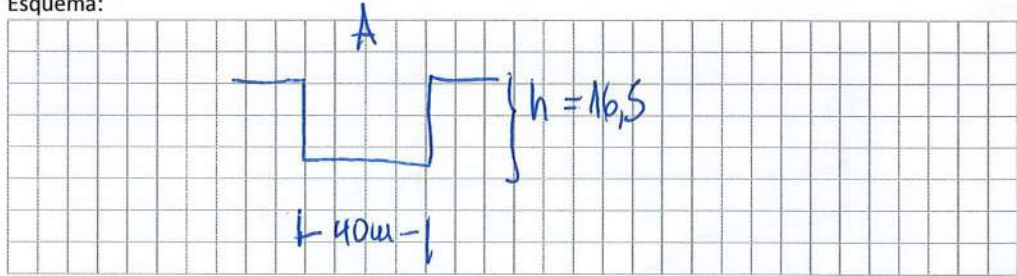 Esquema:
A
h = 16,5
40m